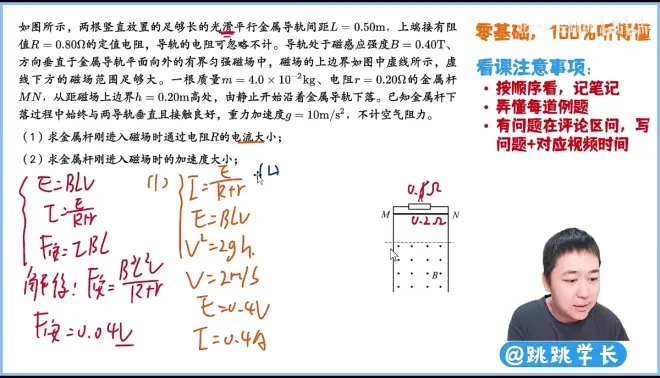 如图所示，两根竖直放置的足够长的光滑平行金属导轨间距L = 0.50m，上端接有阻
值R = 0.80Ω的定值电阻，导轨的电阻可忽略不计。导轨处于磁感应强度B = 0.40T、
方向垂直于金属导轨平面向外的有界匀强磁场中，磁场的上边界如图中虚线所示，虚
线下方的磁场范围足够大。一根质量m = 4.0 × 10⁻²kg、电阻r = 0.20Ω的金属杆
MN，从距磁场上边界h = 0.20m高处，由静止开始沿着金属导轨下落。已知金属杆下
落过程中始终与两导轨垂直且接触良好，重力加速度g = 10m/s²，不计空气阻力。
（1）求金属杆刚进入磁场时通过电阻R的电流大小；
（2）求金属杆刚进入磁场时的加速度大小；
E=BLV
I=E/R+r
F安=IBL
解得：F安=B²L²V/R+r
F安=0.04V
(1)
I=E/R+r
E=BLV
V²=2gh.
V=2m/S
E=0.4V
I=0.4A
0.8Ω
M
N
0.2Ω
B
零基础，100%听得懂
看课注意事项：
• 按顺序看，记笔记
• 弄懂每道例题
• 有问题在评论区问，写
问题+对应视频时间
@跳跳学长